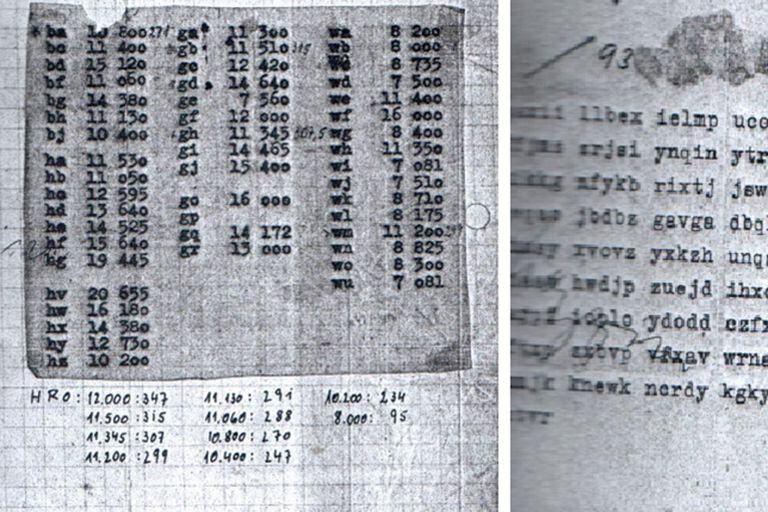 ba 10 800 271
bc 11 400
bd 15 120
bf 11 060
bg 14 380
bh 11 130
bj 10 400
ha 11 530
hb 11 050
hc 12 595
hd 13 640
he 14 525
hf 15 640
hg 19 445
hv 20 655
hw 16 180
hx 14 380
hy 12 730
hz 10 200
ga 11 300
gb 11 510 315
gc 12 420
gd 14 640
ge 7 560
gf 12 000
gh 11 345 307,5
gi 14 465
gj 15 400
go 16 000
gp
gq 14 172
gr 13 000
wa 8 200
wb 8 000
8 735
wd 7 500
we 11 400
wf 16 000
wg 8 400
wh 11 350
wi 7 081
wj 7 510
wk 8 710
wl 8 175
wm 11 200
wn 8 825
wo 8 300
wu 7 081
HRO: 12.000:347 11.130: 291 10.200: 234
11.500:315 11.060: 288 8.000: 95
11.345:307 10.800: 270
11.200:299 10.400: 247
93
llbex ielmp uco
srjsi ynqin ytr
nfykb rixtj jsw
jbdbz gavga dbq
xvovz yxkzh unq
hwdjp zuejd ihx
ioglo ydodd czfx
sxtvp vfxav wrna
knewk ncrdy kgky